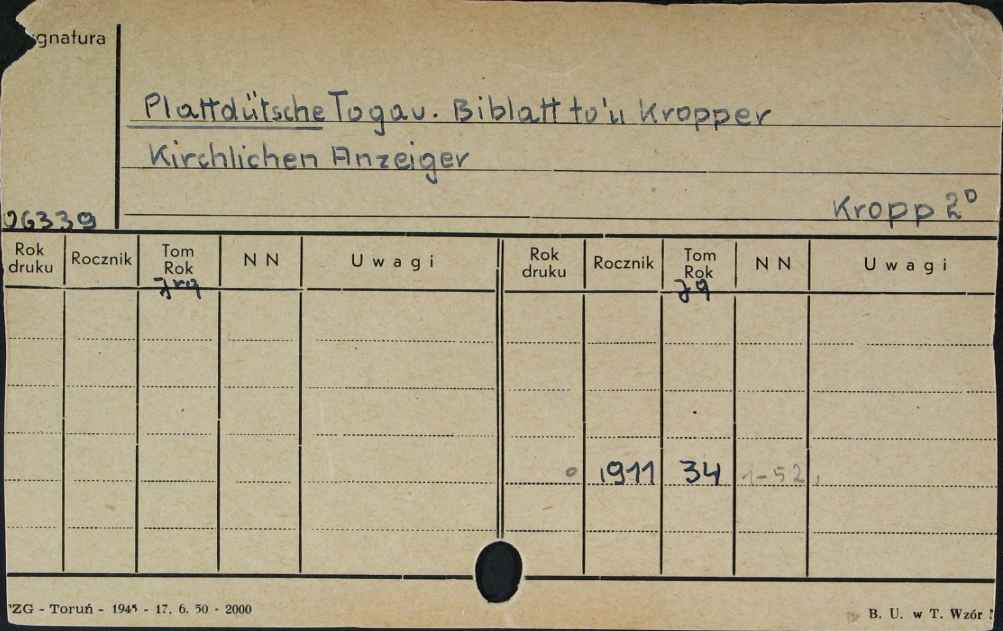 ygnatura
Plattdütsche Togav. Biblatt to'n Kropper
Kirchlichen Anzeiger
Kropp 2°
06339
Rok druku Rocznik Tom Rok Jrg N N Uwagi Rok druku Rocznik Tom Rok Jg N N Uwagi
1911 34 1-52
ZG - Toruń - 1945 - 17. 6. 50 - 2000
B. U. w T. Wzór